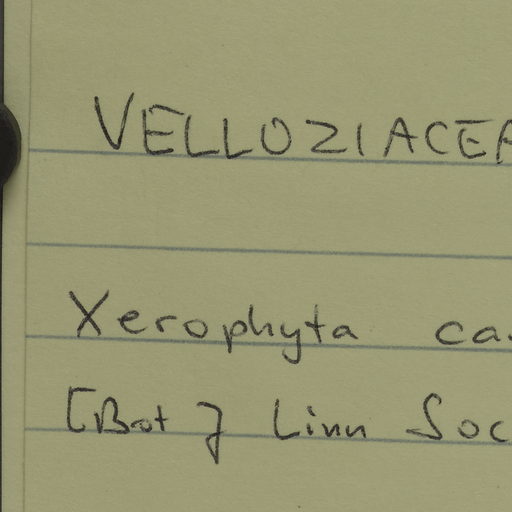 VELLOZIACEA
Xerophyta ca
[Bot J Linn Soc